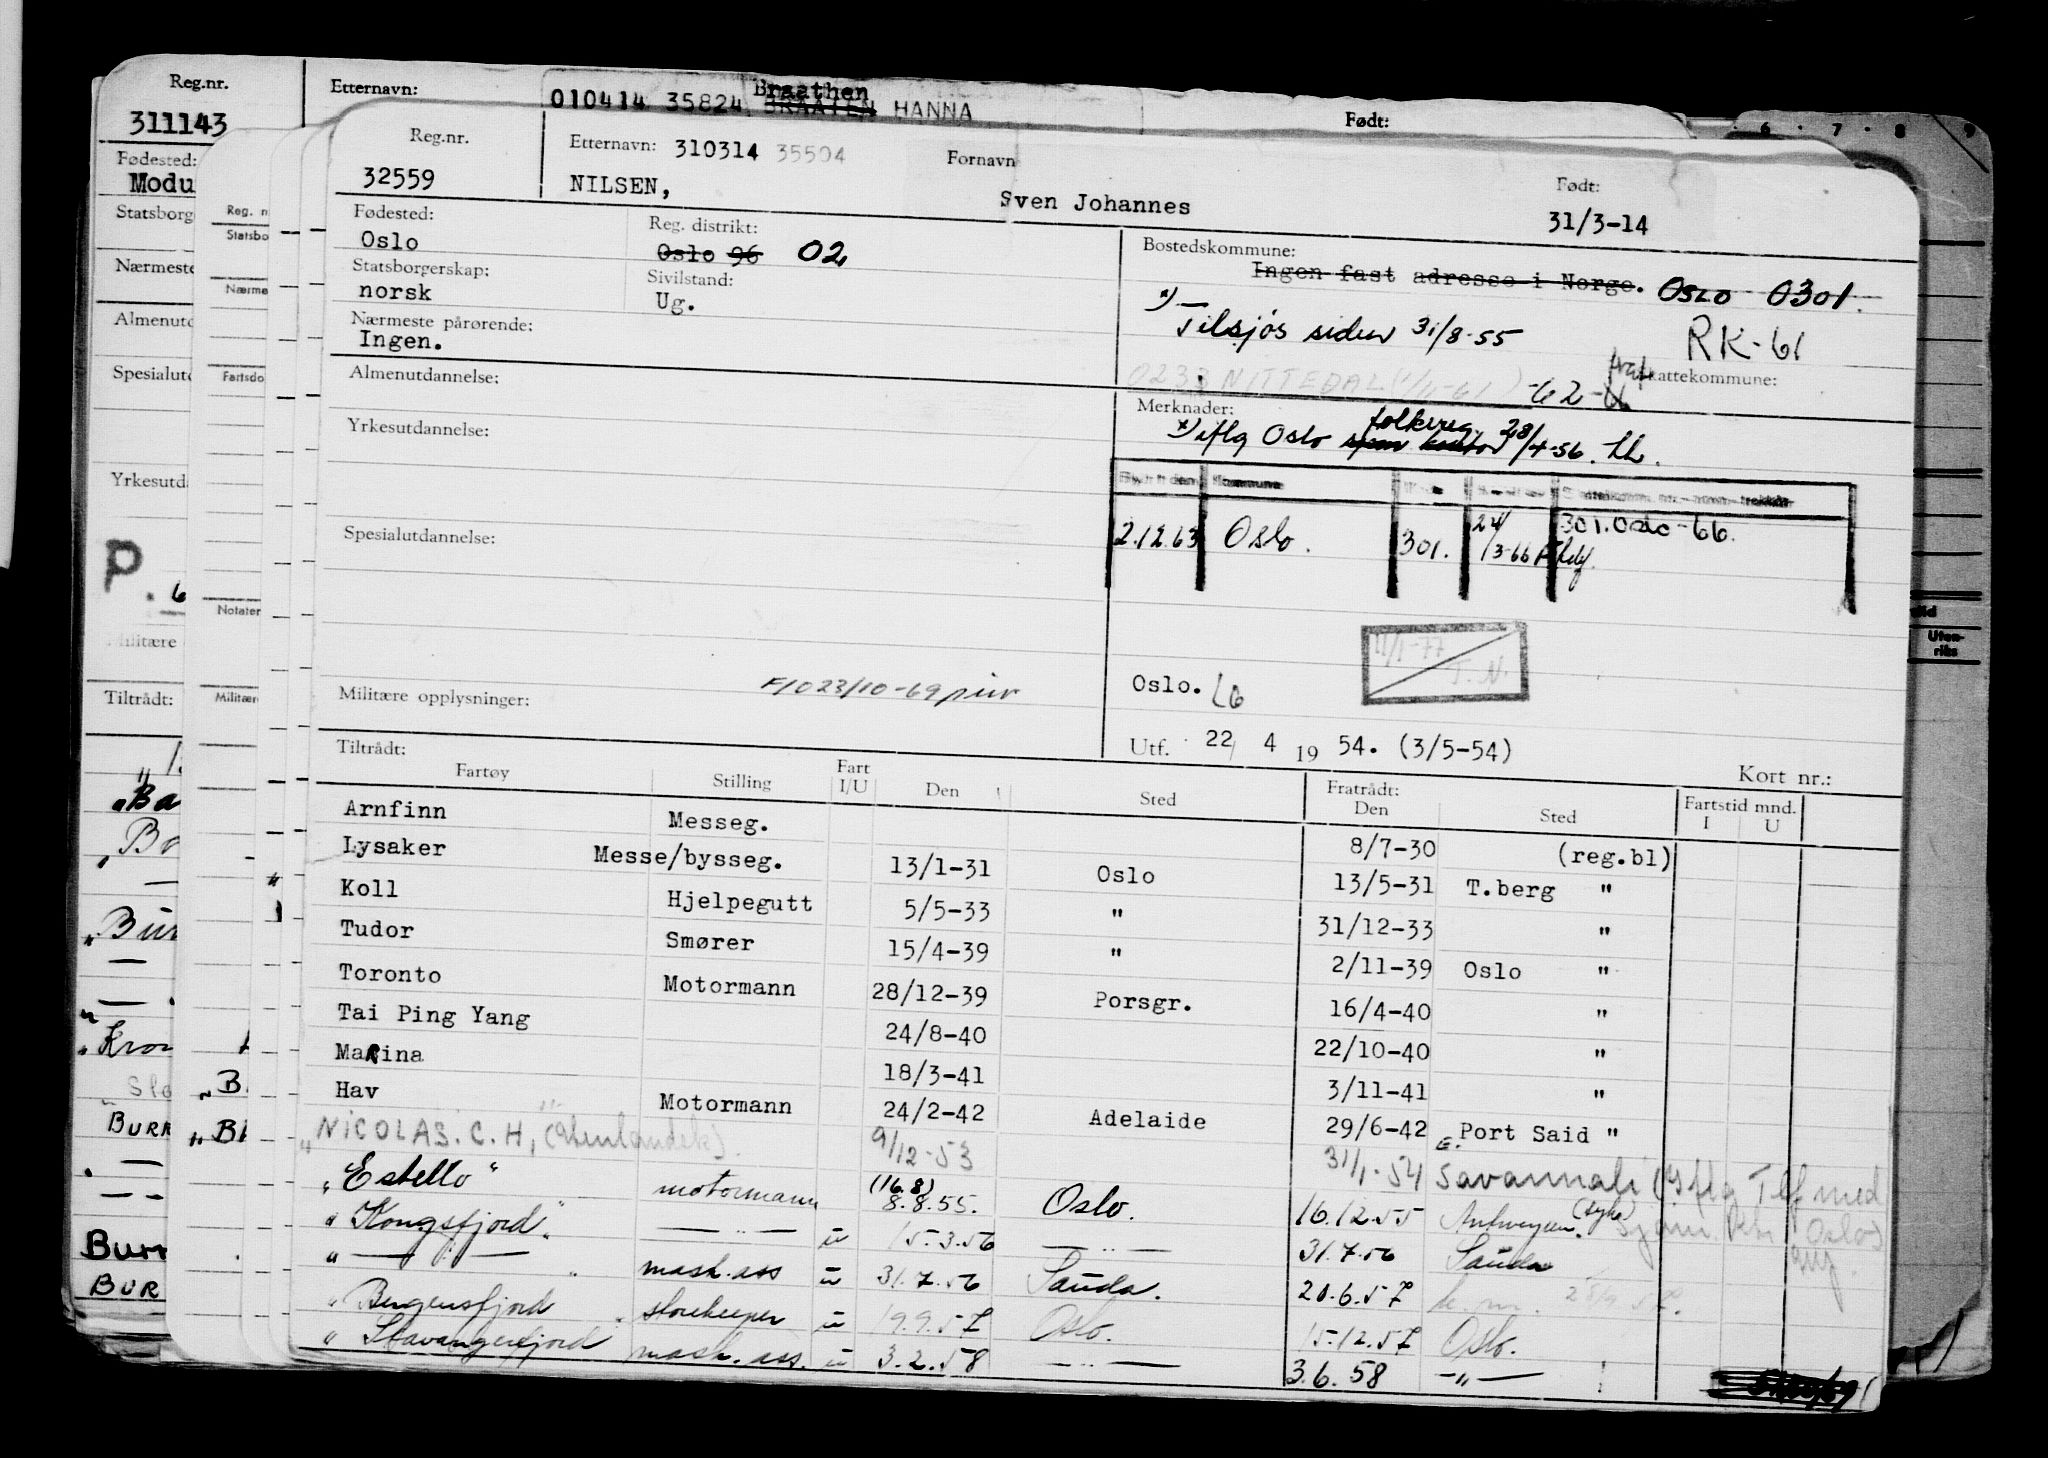 Reg.nr.
311143
Etternavn:
010414 35824, BRAATEN Braathen HANNA
Født:
Fødested:
Modu
Statsborg
Nærmeste
Almenutd
Spesialutd
Yrkesutd
P.
Militære
Tiltrådt:
Reg. n
Statsbo
Nærme
Fartsdo
Notater
Militære
Reg.nr.
32559
Etternavn: 310314 35504
NILSEN,
Fornavn
Sven Johannes
Født:
31/3-14
Fødested:
Oslo
Reg. distrikt:
Oslo 96 02
Statsborgerskap:
norsk
Sivilstand:
Ug.
Nærmeste pårørende:
Ingen.
Bostedskommune:
Ingen fast adresse i Norge. OSLO 0301.
*) Tilsjøs siden 31/8-55
RK-61
0233 NITTEDAL -62
Skattekommune:
Almenutdannelse:
Merknader:
*) iflg Oslo folkereg. 28/4-56.
Yrkesutdannelse:
Kommune
2.12.63 Oslo. 301. 24/3-66 301.Oslo-66.
Spesialutdannelse:
11/1-77
T.N.
Militære opplysninger:
Oslo.
Utf. 22/ 4 19 54. (3/5-54)
Tiltrådt:
Kort nr.:
Fartøy Stilling Fart I/U Den Sted Fratrådt: Den Sted Fartstid mnd. I U
Arnfinn Messeg. 8/7-30 (reg.bl)
Lysaker Messe/bysseg. 13/1-31 Oslo 13/5-31 T.berg "
Koll Hjelpegutt 5/5-33 " 31/12-33 "
Tudor Smører 15/4-39 " 2/11-39 Oslo "
Toronto Motormann 28/12-39 Porsgr. 16/4-40 "
Tai Ping Yang 24/8-40 22/10-40 "
MaRina 18/3-41 3/11-41 "
Hav Motormann 24/2-42 Adelaide 29/6-42 Port Said "
"NICOLAS. C. H," (utenlandsk). 9/12-53 31/1-54 Savannah (Iflg Tlf med Sjøm. ktr Oslo)
"Estello" motormann (16.8) 8.8.55. Oslo. 16.12.55 Antwerpen. (syk)
"Kongsfjord" — " — u 15.3.56 — " — 31.7.56 Sauda
" — " — mask.ass u 31.7.56 Sauda. 20.6.57
"Bergensfjord" storekeeper u 19.9.57 Oslo. 15.12.57 Oslo.
"Stavangerfjord" mask.ass. u 3.2.58 — " — 3.6.58 — " —